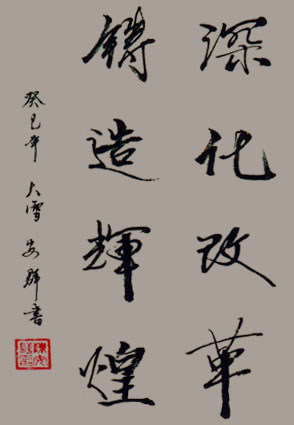 深化改革
鑄造輝煌
癸巳年 大雪 安群書